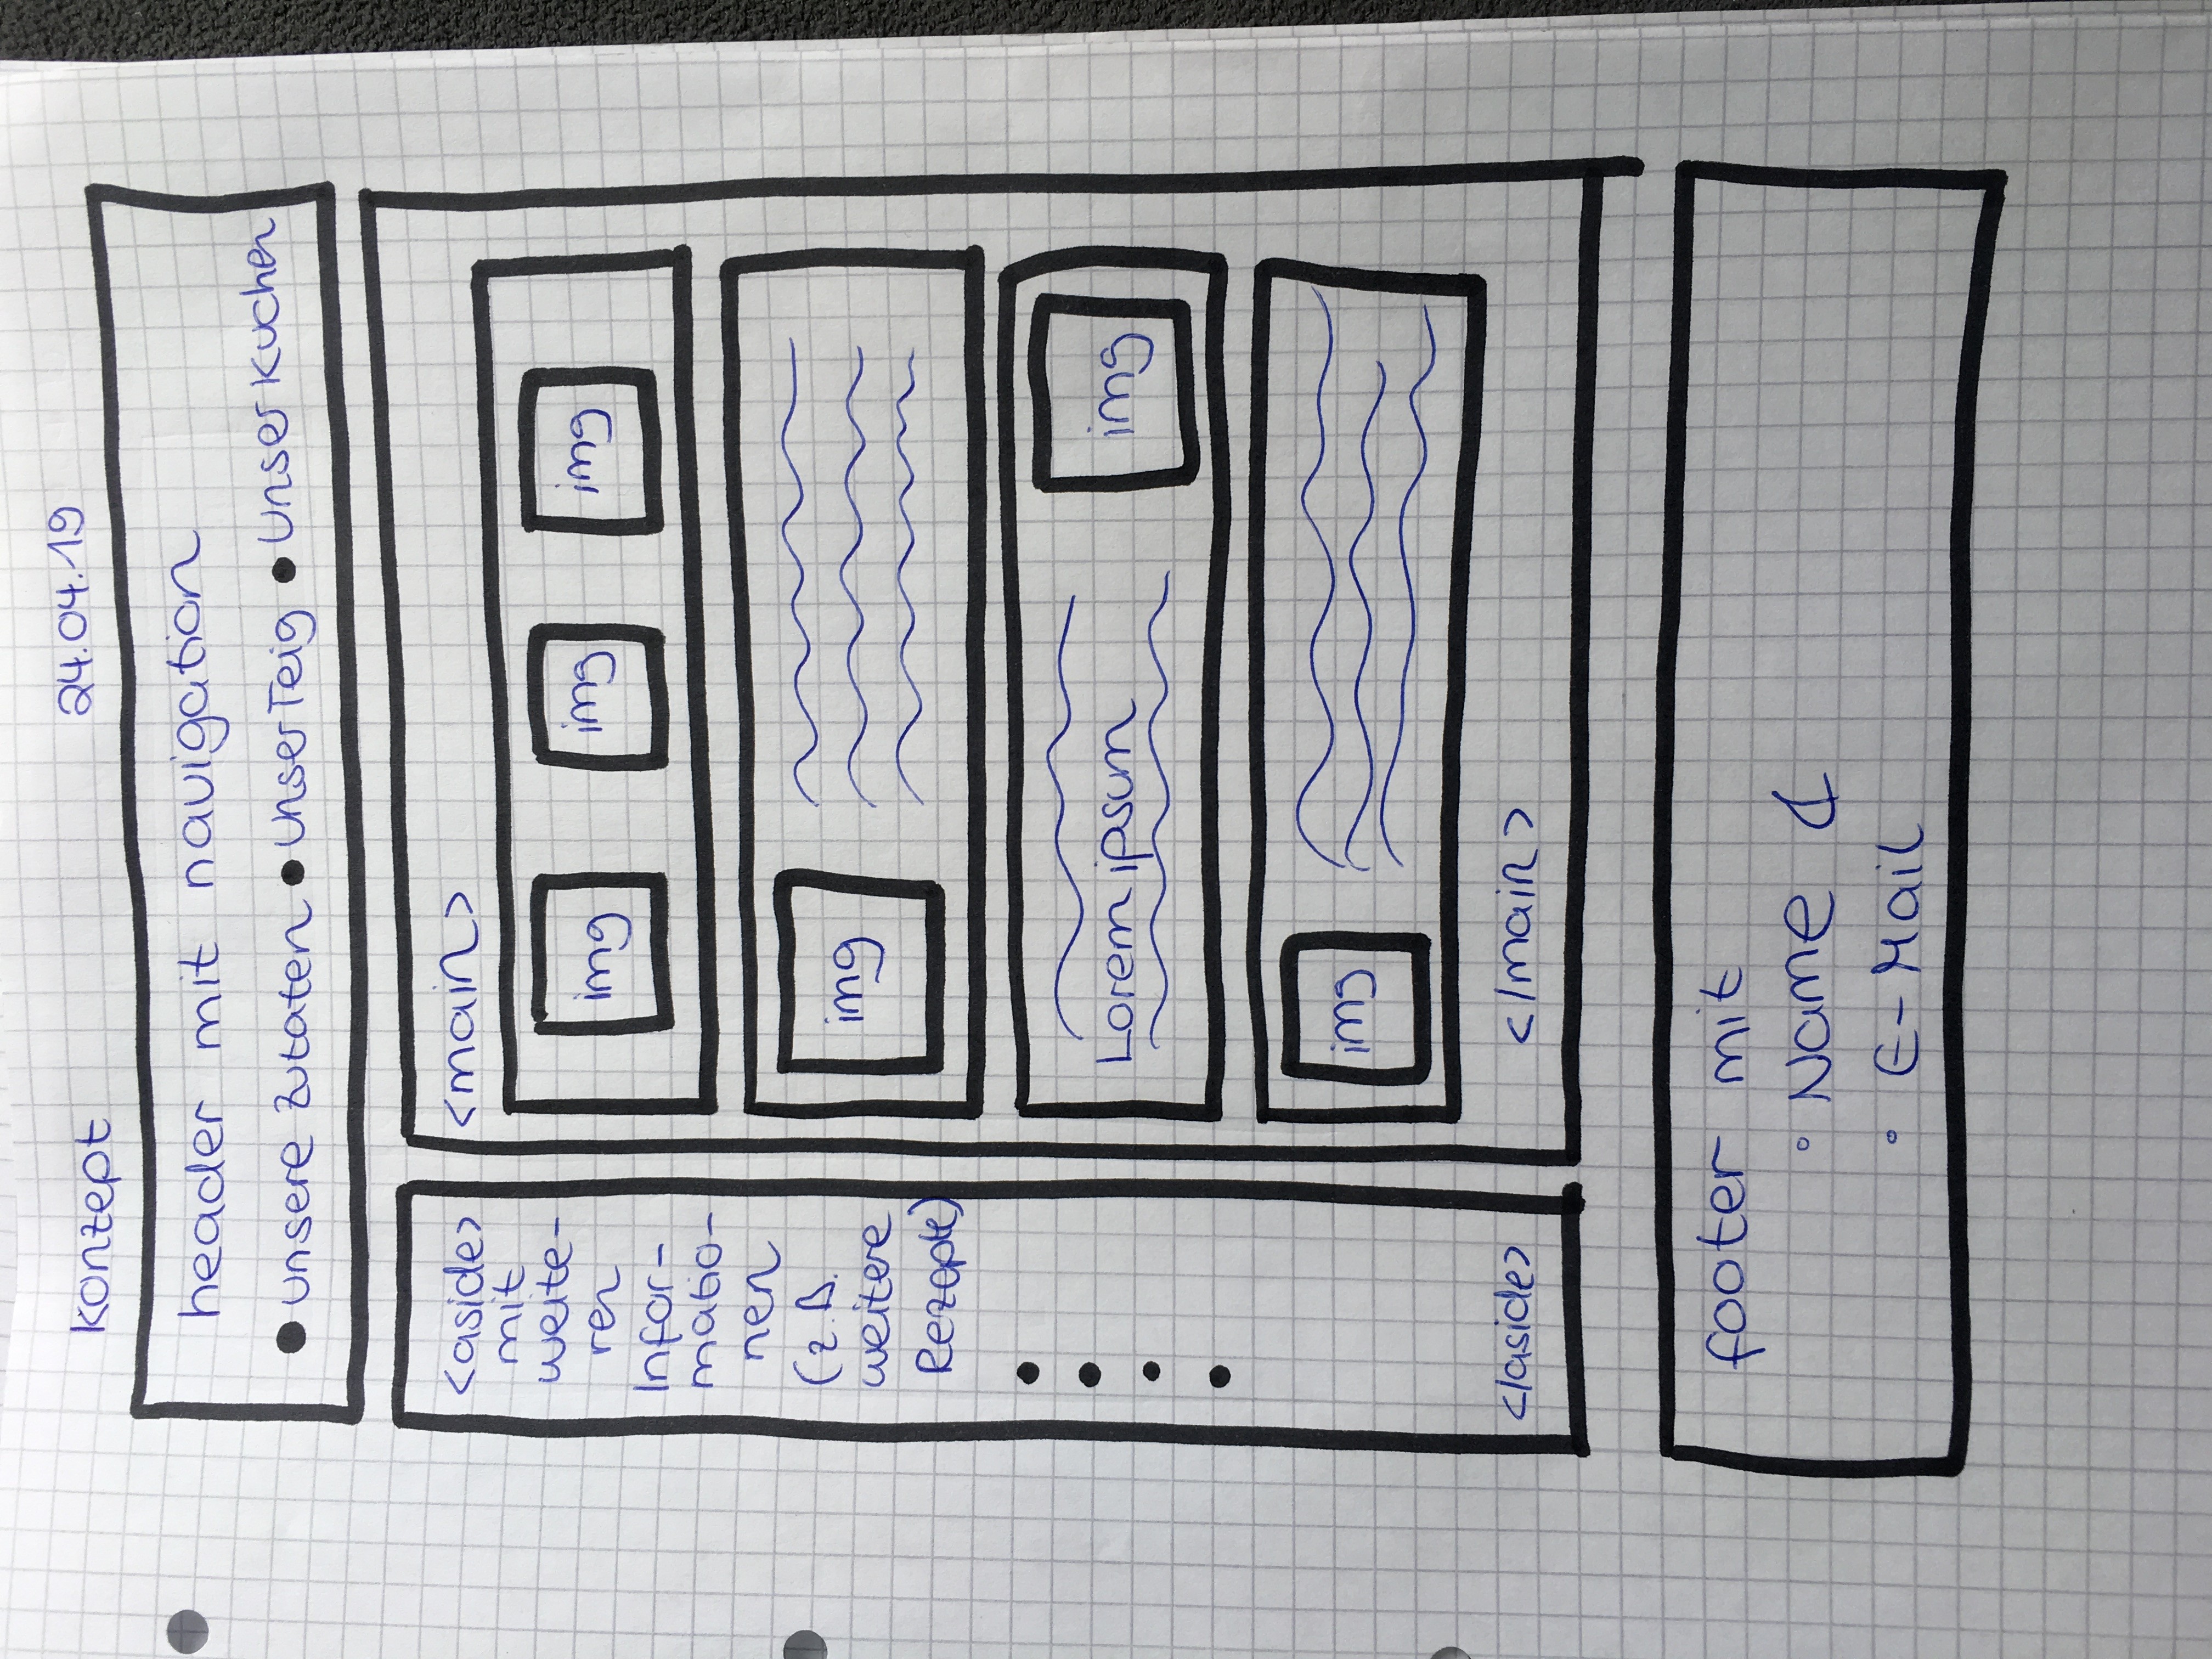 Konzept
24.04.19
header mit navigation
• unsere Zutaten • Unser Teig • Unser Kuchen
<aside>
mit
weite-
ren
Infor-
matio-
nen
(z.B.
weitere
Rezepte)
</aside>
<main>
img img img
img
Lorem ipsum
img
img
</main>
footer mit
• Name &
• E-Mail